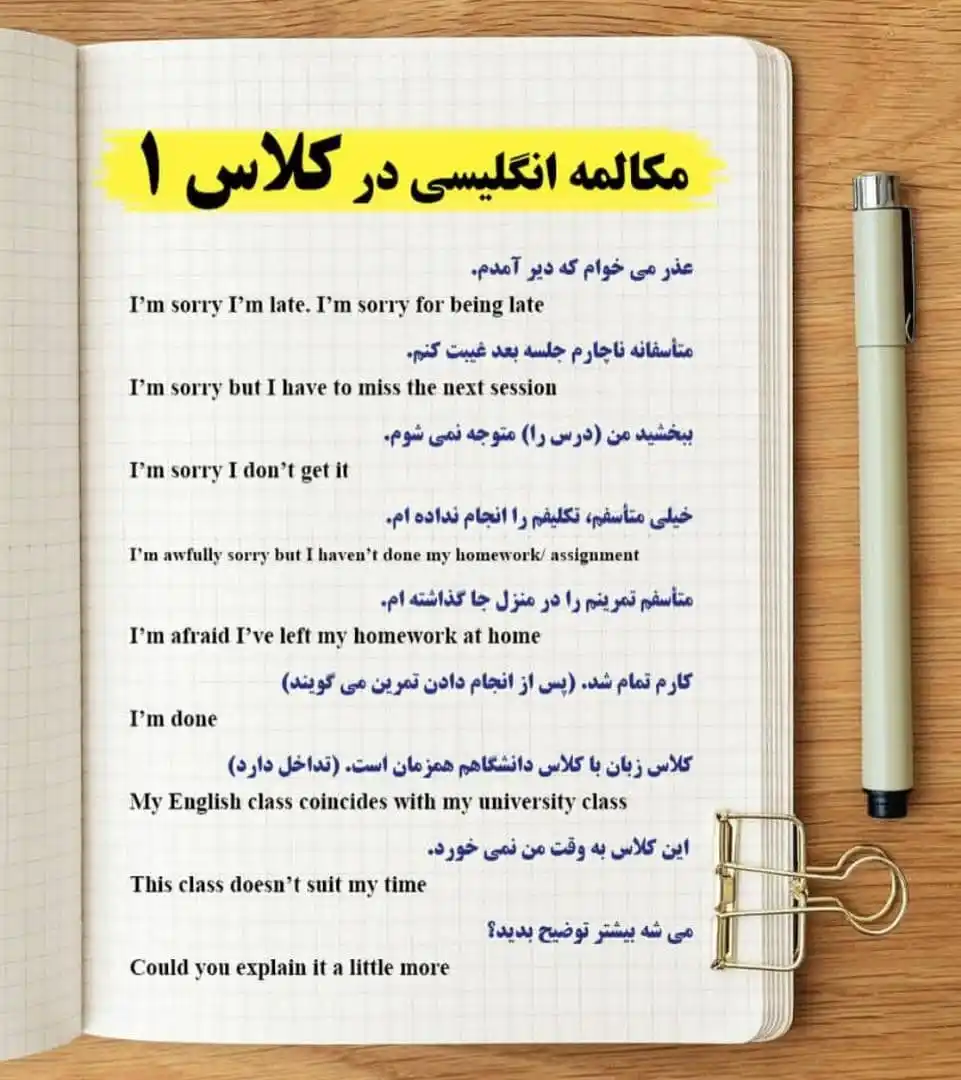 مکالمه انگلیسی در کلاس ۱
عذر می خوام که دیر آمدم.
I'm sorry I'm late. I'm sorry for being late
متأسفانه ناچارم جلسه بعد غیبت کنم.
I'm sorry but I have to miss the next session
ببخشید من (درس را) متوجه نمی شوم.
I'm sorry I don't get it
خیلی متأسفم، تکلیفم را انجام نداده ام.
I'm awfully sorry but I haven't done my homework/ assignment
متأسفم تمرینم را در منزل جا گذاشته ام.
I'm afraid I've left my homework at home
کارم تمام شد. (پس از انجام دادن تمرین می گویند)
I'm done
کلاس زبان با کلاس دانشگاهم همزمان است. (تداخل دارد)
My English class coincides with my university class
این کلاس به وقت من نمی خورد.
This class doesn't suit my time
می شه بیشتر توضیح بدید؟
Could you explain it a little more